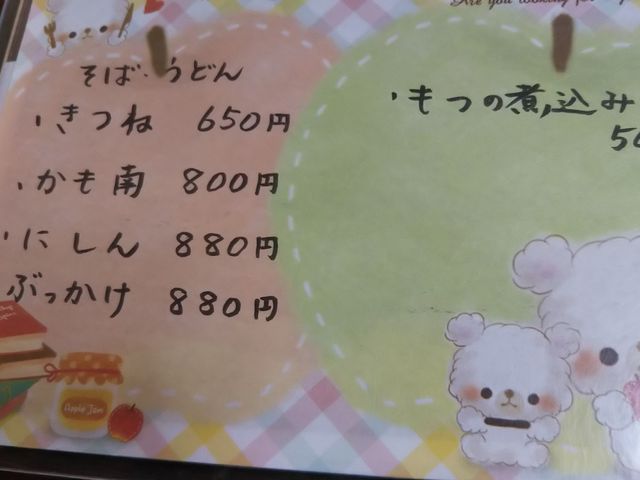 そば・うどん
・きつね 650円
・かも南 800円
・にしん 880円
ぶっかけ 880円
・もつの煮込み
Are you looking for
Apple Jam